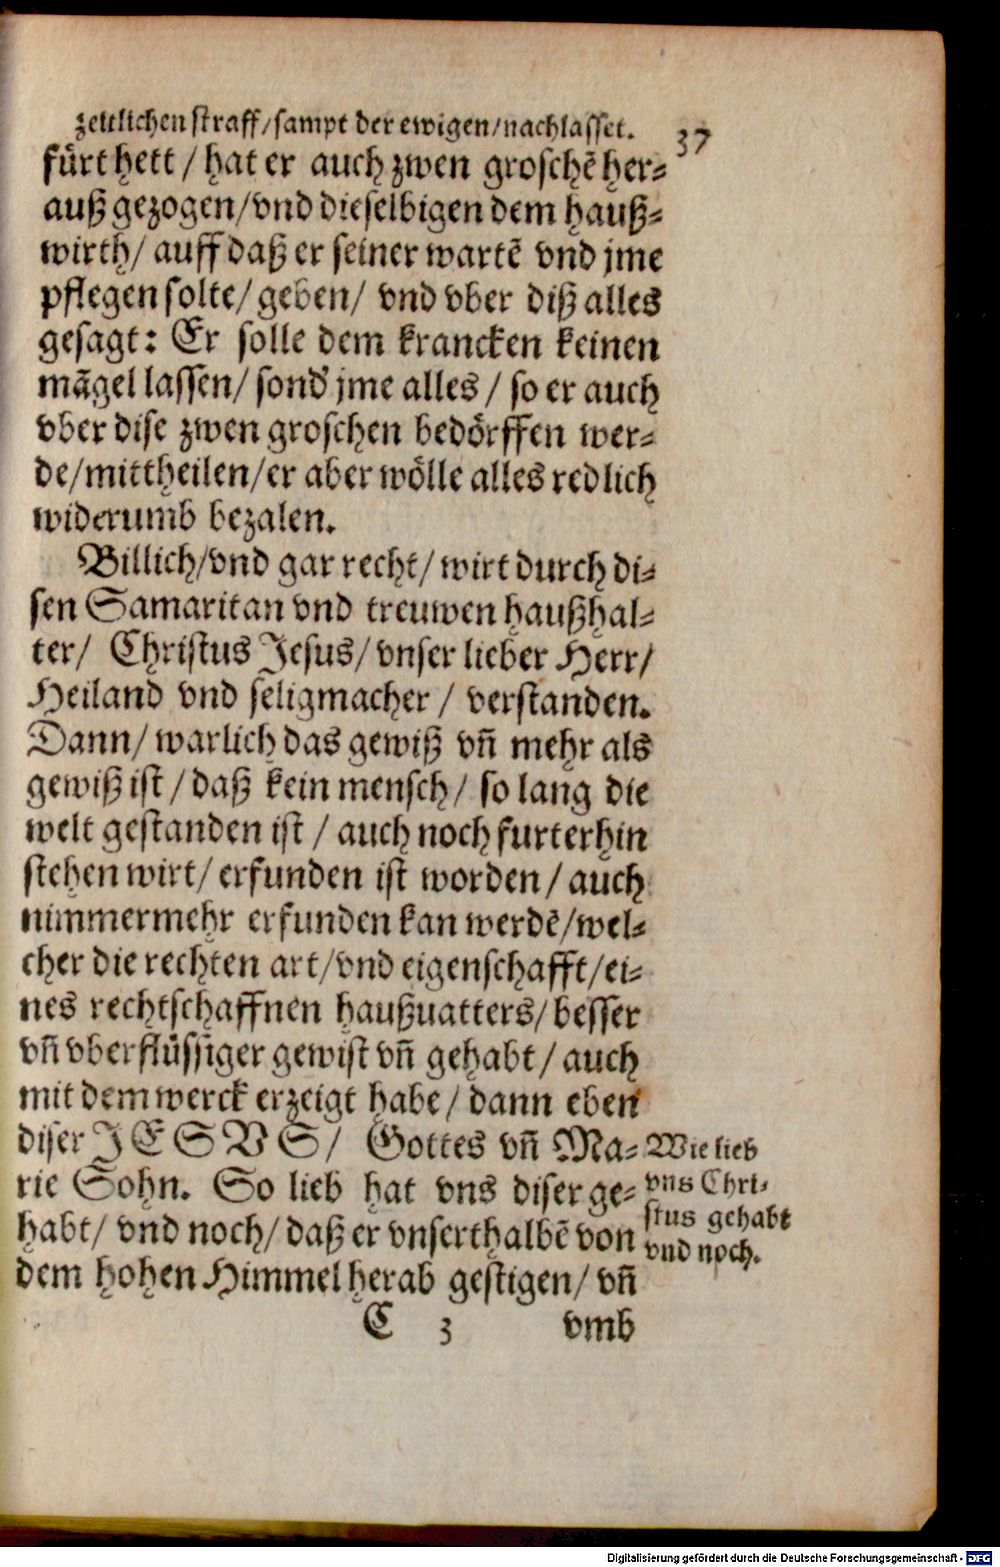 zeitlichen straff/sampt der ewigen/nachlasset.
37
fürt hett/ hat er auch zwen groschẽ her⸗
auß gezogen/vnd dieselbigen dem hauß⸗
wirth/ auff daß er seiner wartẽ vnd jme
pflegen solte/geben/ vnd vber diß alles
gesagt: Er solle dem krancken keinen
mãgel lassen/ sond' jme alles/ so er auch
vber dise zwen groschen bedörffen wer⸗
de/mittheilen/er aber wölle alles redlich
widerumb bezalen.
Billich/vnd gar recht/ wirt durch di⸗
sen Samaritan vnd treuwen haußhal⸗
ter/ Christus Jesus/ vnser lieber Herr/
Heiland vnd seligmacher/ verstanden.
Dann/ warlich das gewiß vñ mehr als
gewiß ist/ daß kein mensch/ so lang die
welt gestanden ist/ auch noch furterhin
stehen wirt/ erfunden ist worden/ auch
nimmermehr erfunden kan werdẽ/wel⸗
cher die rechten art/vnd eigenschafft/ei⸗
nes rechtschaffnen haußuatters/ besser
vñ vberflüssiger gewist vñ gehabt/ auch
mit dem werck erzeigt habe/ dann eben
diser JESVS/ Gottes vñ Ma⸗
rie Sohn. So lieb hat vns diser ge⸗
habt/ vnd noch/ daß er vnserthalbẽ von
dem hohen Himmel herab gestigen/ vñ
Wie lieb
vns Chri⸗
stus gehabt
vnd noch.
C 3 vmb
Digitalisierung gefördert durch die Deutsche Forschungsgemeinschaft - DFG